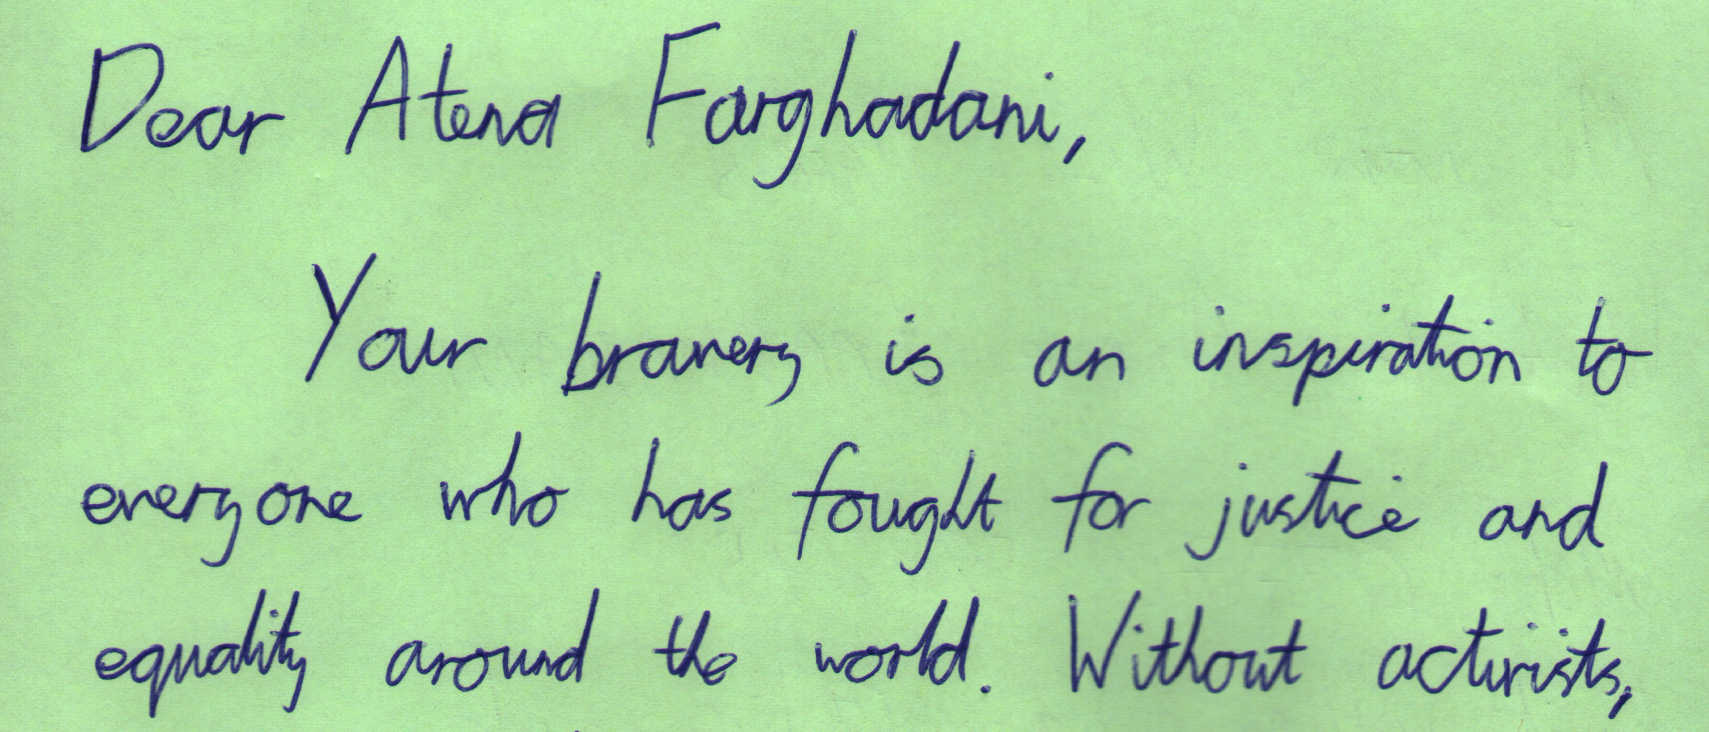 Dear Atena Farghadani,
Your bravery is an inspiration to
everyone who has fought for justice and
equality around the world. Without activists,